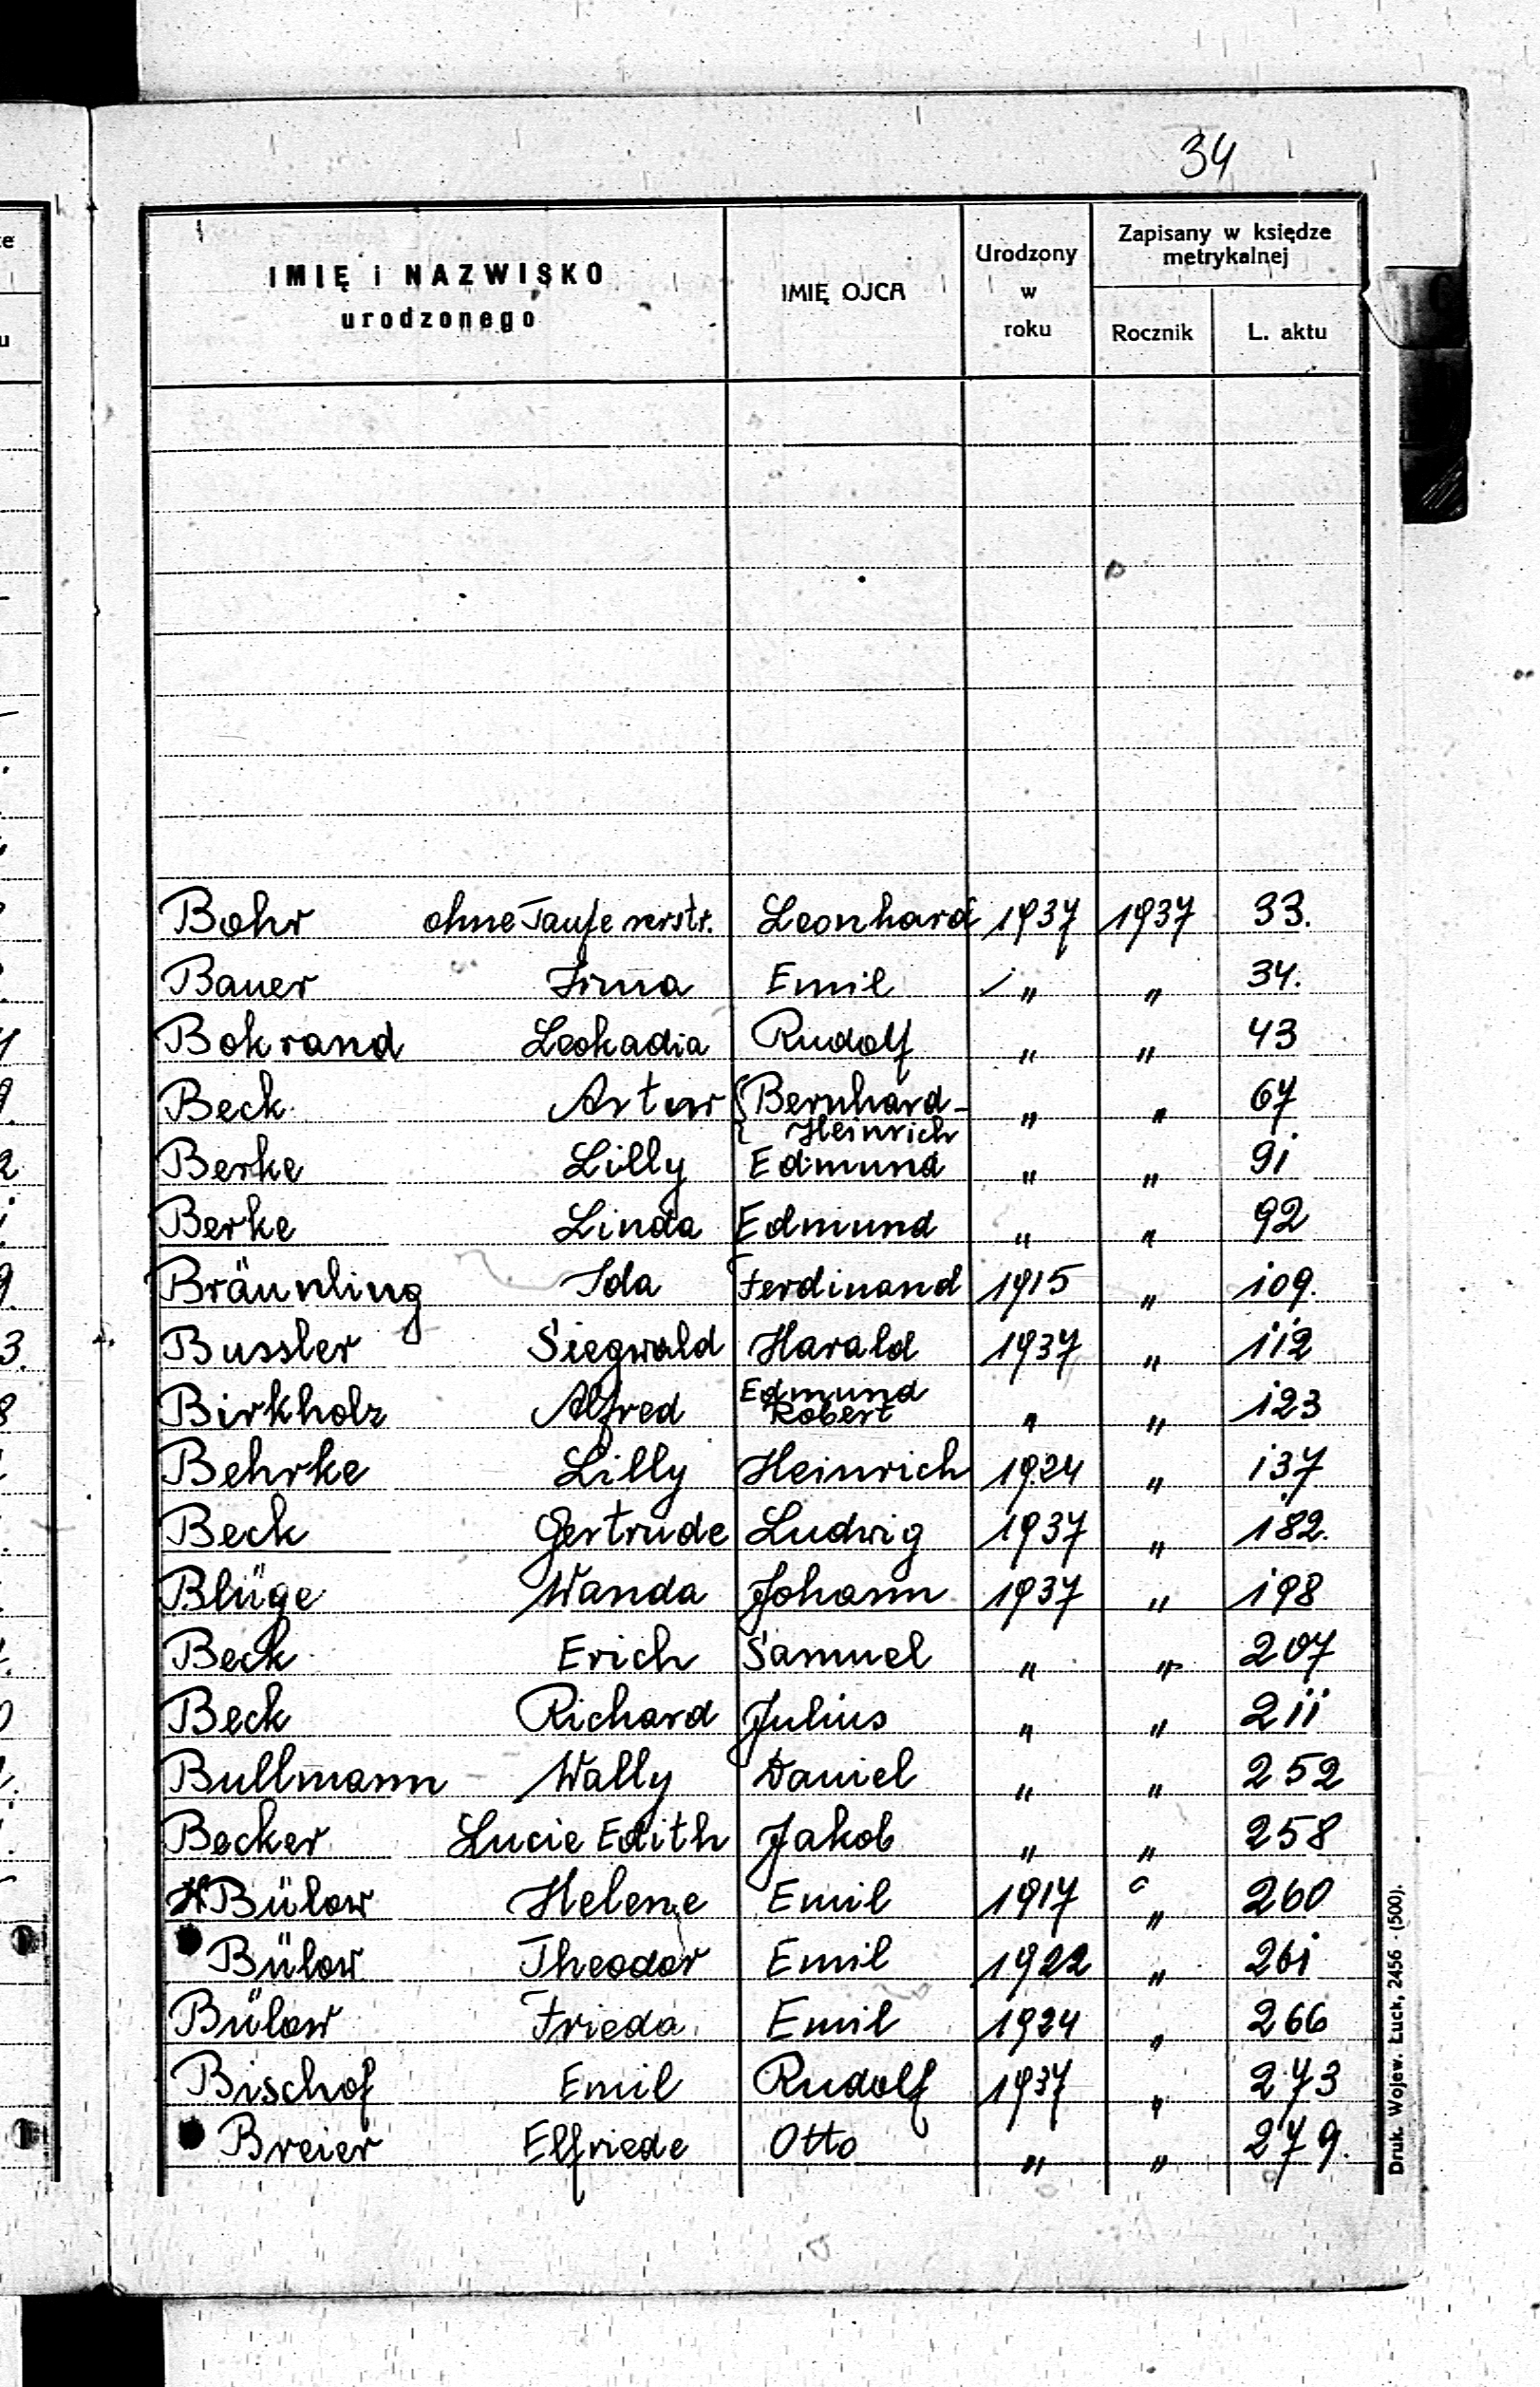 34
IMIĘ i NAZWISKO urodzonego IMIĘ OJCA Urodzony w roku Zapisany w księdze metrykalnej Rocznik L. aktu
Bohr ohne Taufe verstr. Leonhard 1937 1937 33.
Bauer Irma Emil " " 34.
Bokrand Leokadia Rudolf " " 43
Beck Artur Bernhard-Heinrich " " 67
Berke Lilly Edmund " " 91
Berke Linda Edmund " " 92
Bräunling Ida Ferdinand 1915 " 109.
Bussler Siegwald Harald 1937 " 112
Birkholz Alfred Edmund Robert " " 123
Behrke Lilly Heinrich 1924 " 137
Beck Gertrude Ludwig 1937 " 182.
Blüge Wanda Johann 1937 " 198
Beck Erich Samuel " " 207
Beck Richard Julius " " 211
Bullmann Wally Daniel " " 252
Becker Lucie Edith Jakob " " 258
Bülow Helene Emil 1917 " 260
Bülow Theodor Emil 1922 " 261
Bülow Frieda Emil 1924 " 266
Bischof Emil Rudolf 1937 " 273
Breier Elfriede Otto " " 279.
Druk. Wojew. Łuck, 2456 - (500).